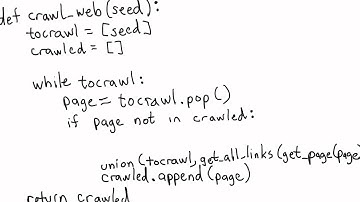 def crawl_web(seed):
tocrawl = [seed]
crawled = []
while tocrawl:
page = tocrawl.pop()
if page not in crawled:
union(tocrawl, get_all_links(get_page(page
crawled.append(page)
return crawled